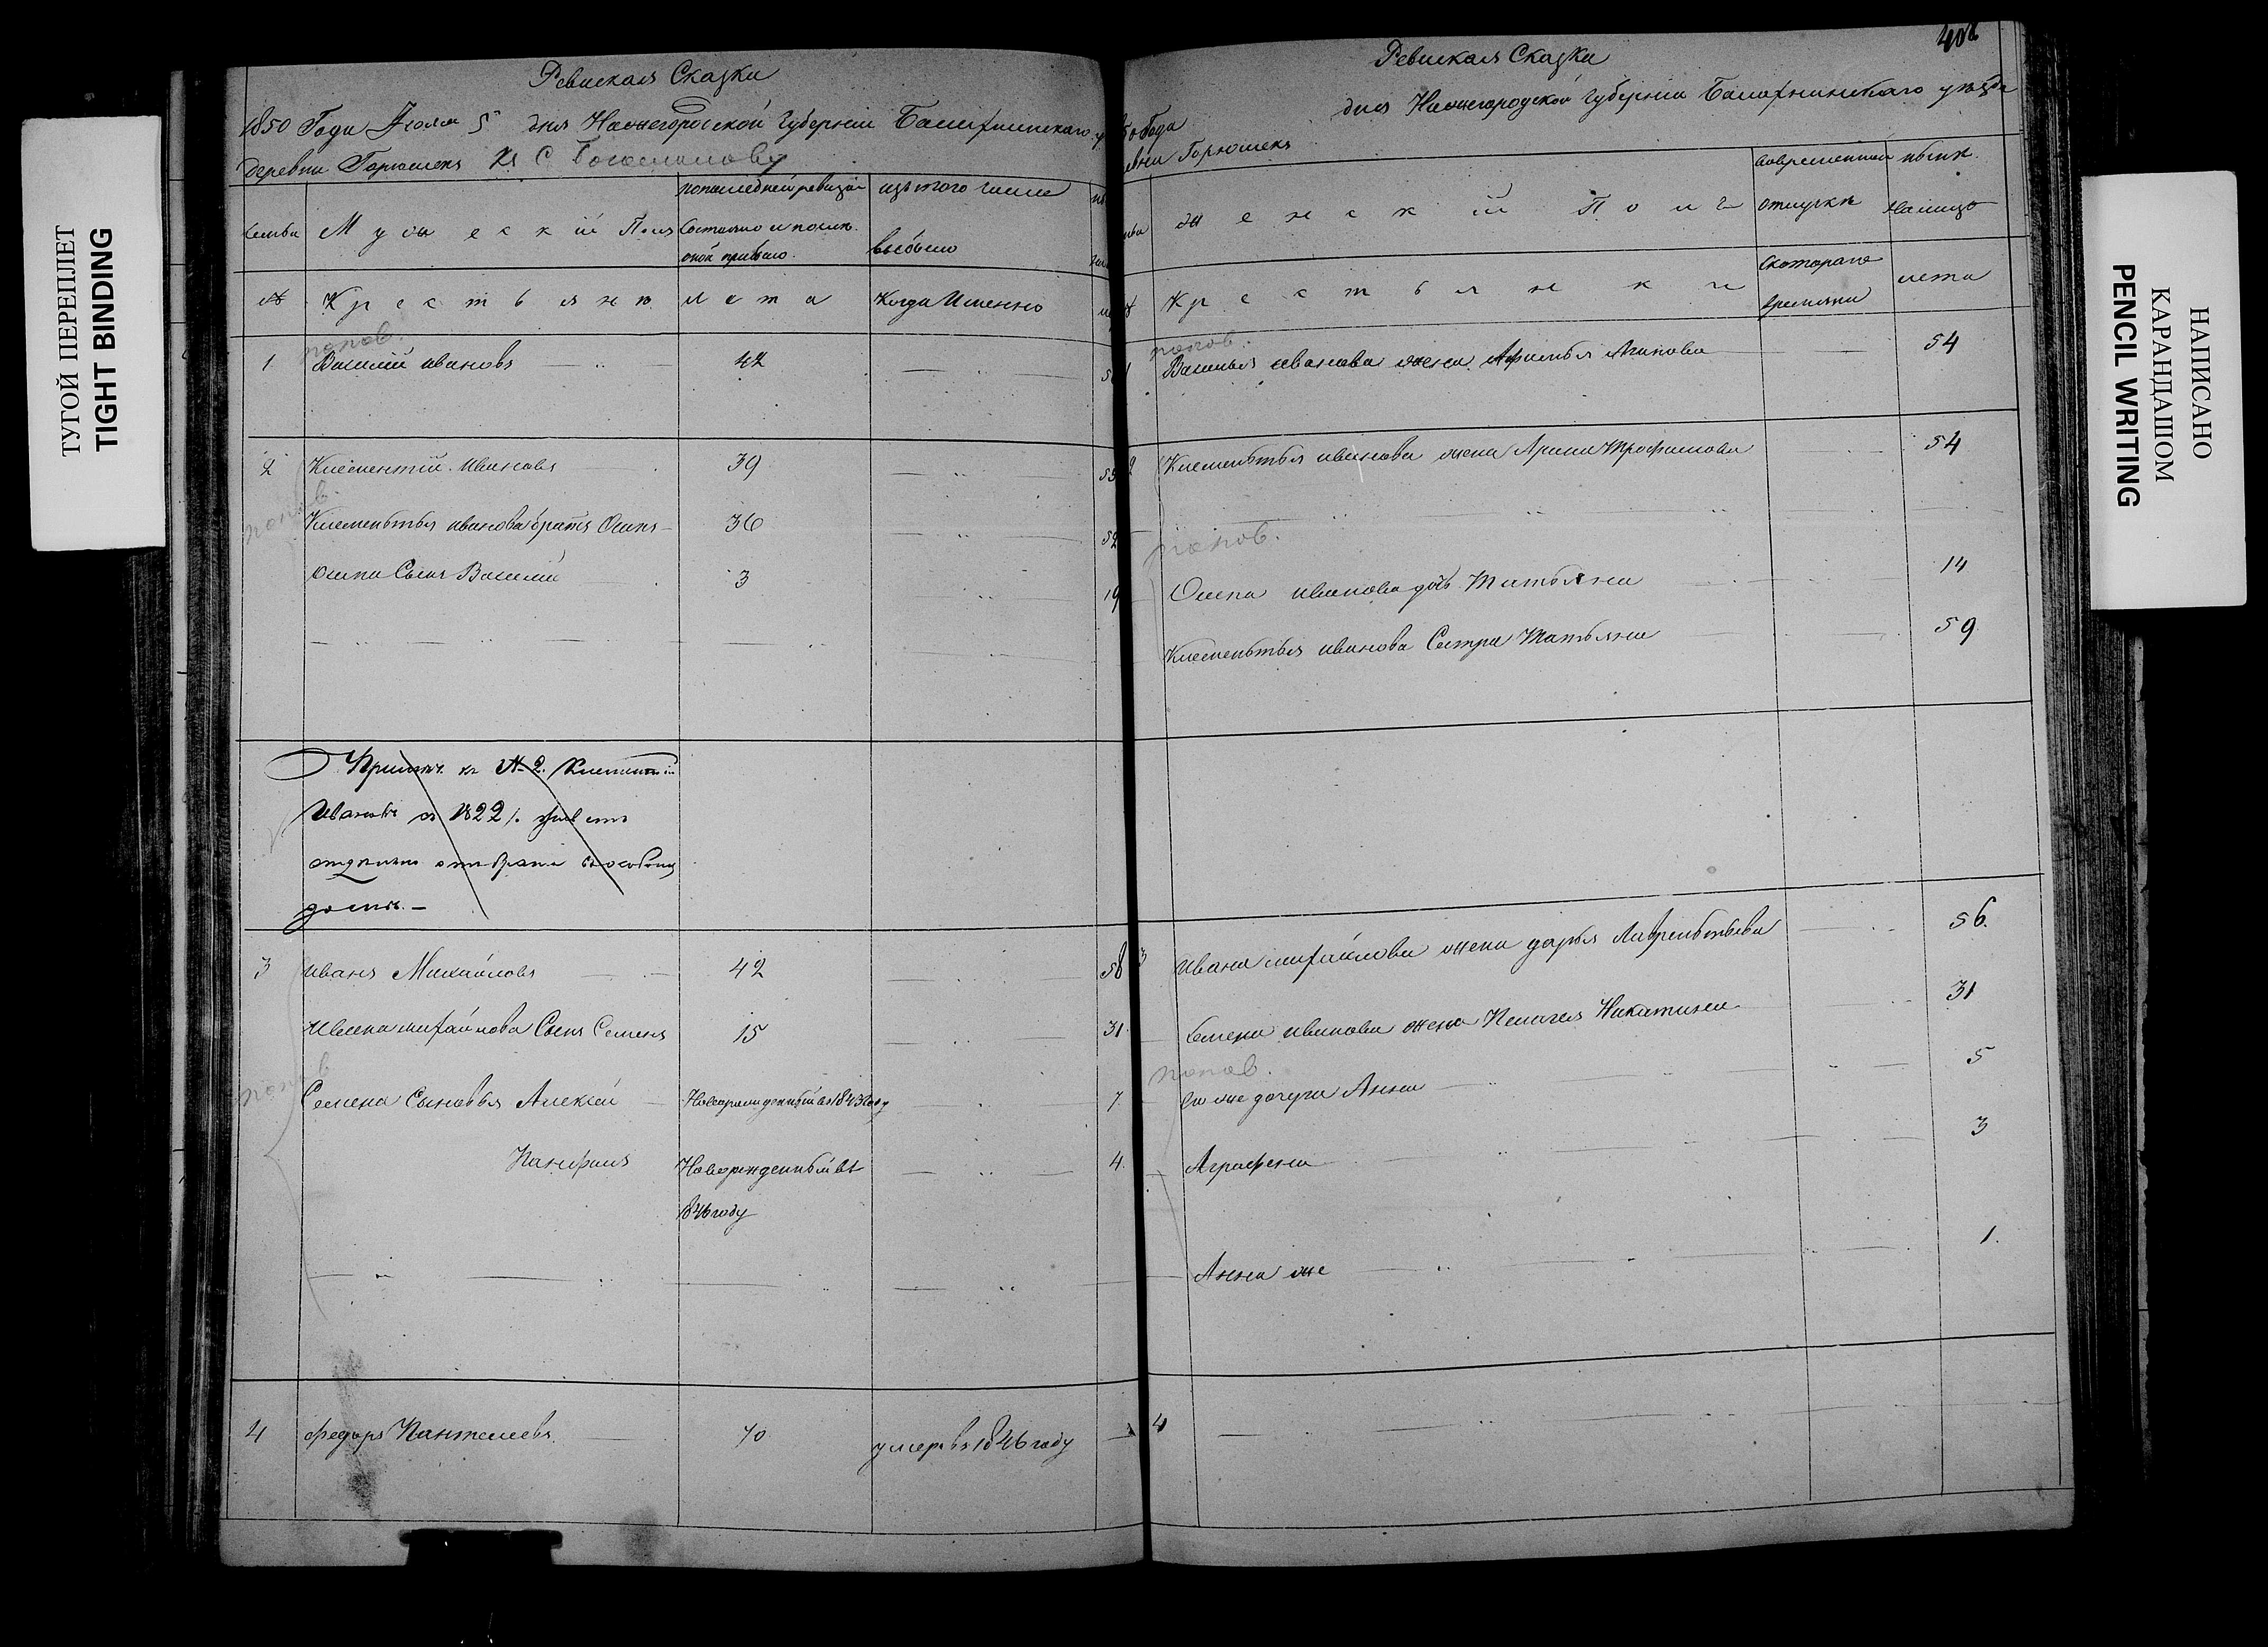 ТУГОЙ ПЕРЕПЛЕТ
TIGHT BINDING
Ревиская Сказка
1850 Года Июля 5 дня Нижегородской Губернии Балахнинскаго
деревни Горюшекъ
Семьи
Мужеской Полъ
по последней ревизіи
состояло и после
оной прибыло.
изъ того числа
выбыло
№
Крестьяне
лета
Когда Именно
попов.
1 Василій ивановъ 42
2 Климентій Ивановъ 39
попов.
Климентья иванова братъ Осипъ 36
52
Осипа Сынъ Василій 3
19
къ № 2. Климентій
Ивановъ съ 1822 г.
домъ. —
3 иванъ Михайловъ 42
58
Ивана михайлова Сынъ Семенъ 15
31.
попов
Семена Сыновья Алексей Новорожденный въ 1843 году 7
Панфилъ Новорожденный въ 4.
1846 году
4 федоръ Пантелеевъ 70 умеръ въ 1846 году
408
Ревиская Сказка
дня Нижегородской Губерніи Балахнинскаго уезда
Горюшекъ
женскій Полъ
во временной
отлучке
ныне
на лицо
Крестьянки
с котораго
времяни
лета
попов.
1 Василья иванова жена Афимья 54
2 Климентья иванова жена Арина Трофимова 54
попов.
Осипа иванова дочь Татьяна 14
Климентья иванова Сестра Татьяна 59
3 ивана михайлова жена дарья Лаврентьева 56.
Семена иванова жена Пелагея Никитина 31
попов.
ево же дочери Анна 5
Аграфена 3
Анна же 1.
4
НАПИСАНО
КАРАНДАШОМ
PENCIL WRITING